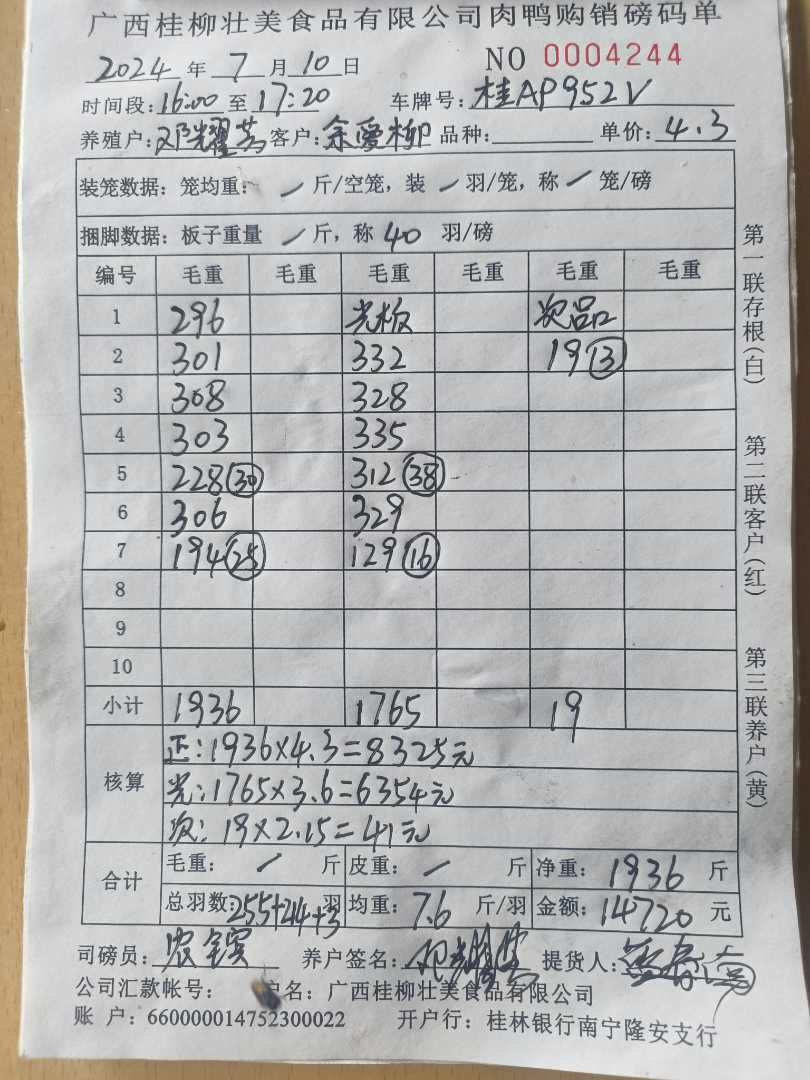 广西桂柳壮美食品有限公司肉鸭购销磅码单
2024 年 7 月 10 日 NO 0004244
时间段:16:00 至 17:20 车牌号:桂AP952V
养殖户:邓耀 客户:余爱柳 品种: 单价:4.3
装笼数据:笼均重: / 斤/空笼,装 / 羽/笼,称 / 笼/磅
捆脚数据:板子重量 / 斤,称 40 羽/磅
编号 毛重 毛重 毛重 毛重 毛重 毛重
1 296 光板 次品
2 301 332 19 (3)
3 308 328
4 303 335
5 228 (30) 312 (38)
6 306 329
7 194 (25) 129 (16)
8
9
10
小计 1936 1765 19
核算 正:1936×4.3=8325元
光:1765×3.6=6354元
次:19×2.15=41元
合计 毛重: / 斤 皮重: / 斤 净重: 1936 斤
总羽数:255+214+3 羽 均重: 7.6 斤/羽 金额: 14720 元
司磅员: 养户签名: 提货人:
公司汇款帐号: 户名:广西桂柳壮美食品有限公司
账 户:660000014752300022 开户行:桂林银行南宁隆安支行
第一联存根(白) 第二联客户(红) 第三联养户(黄)